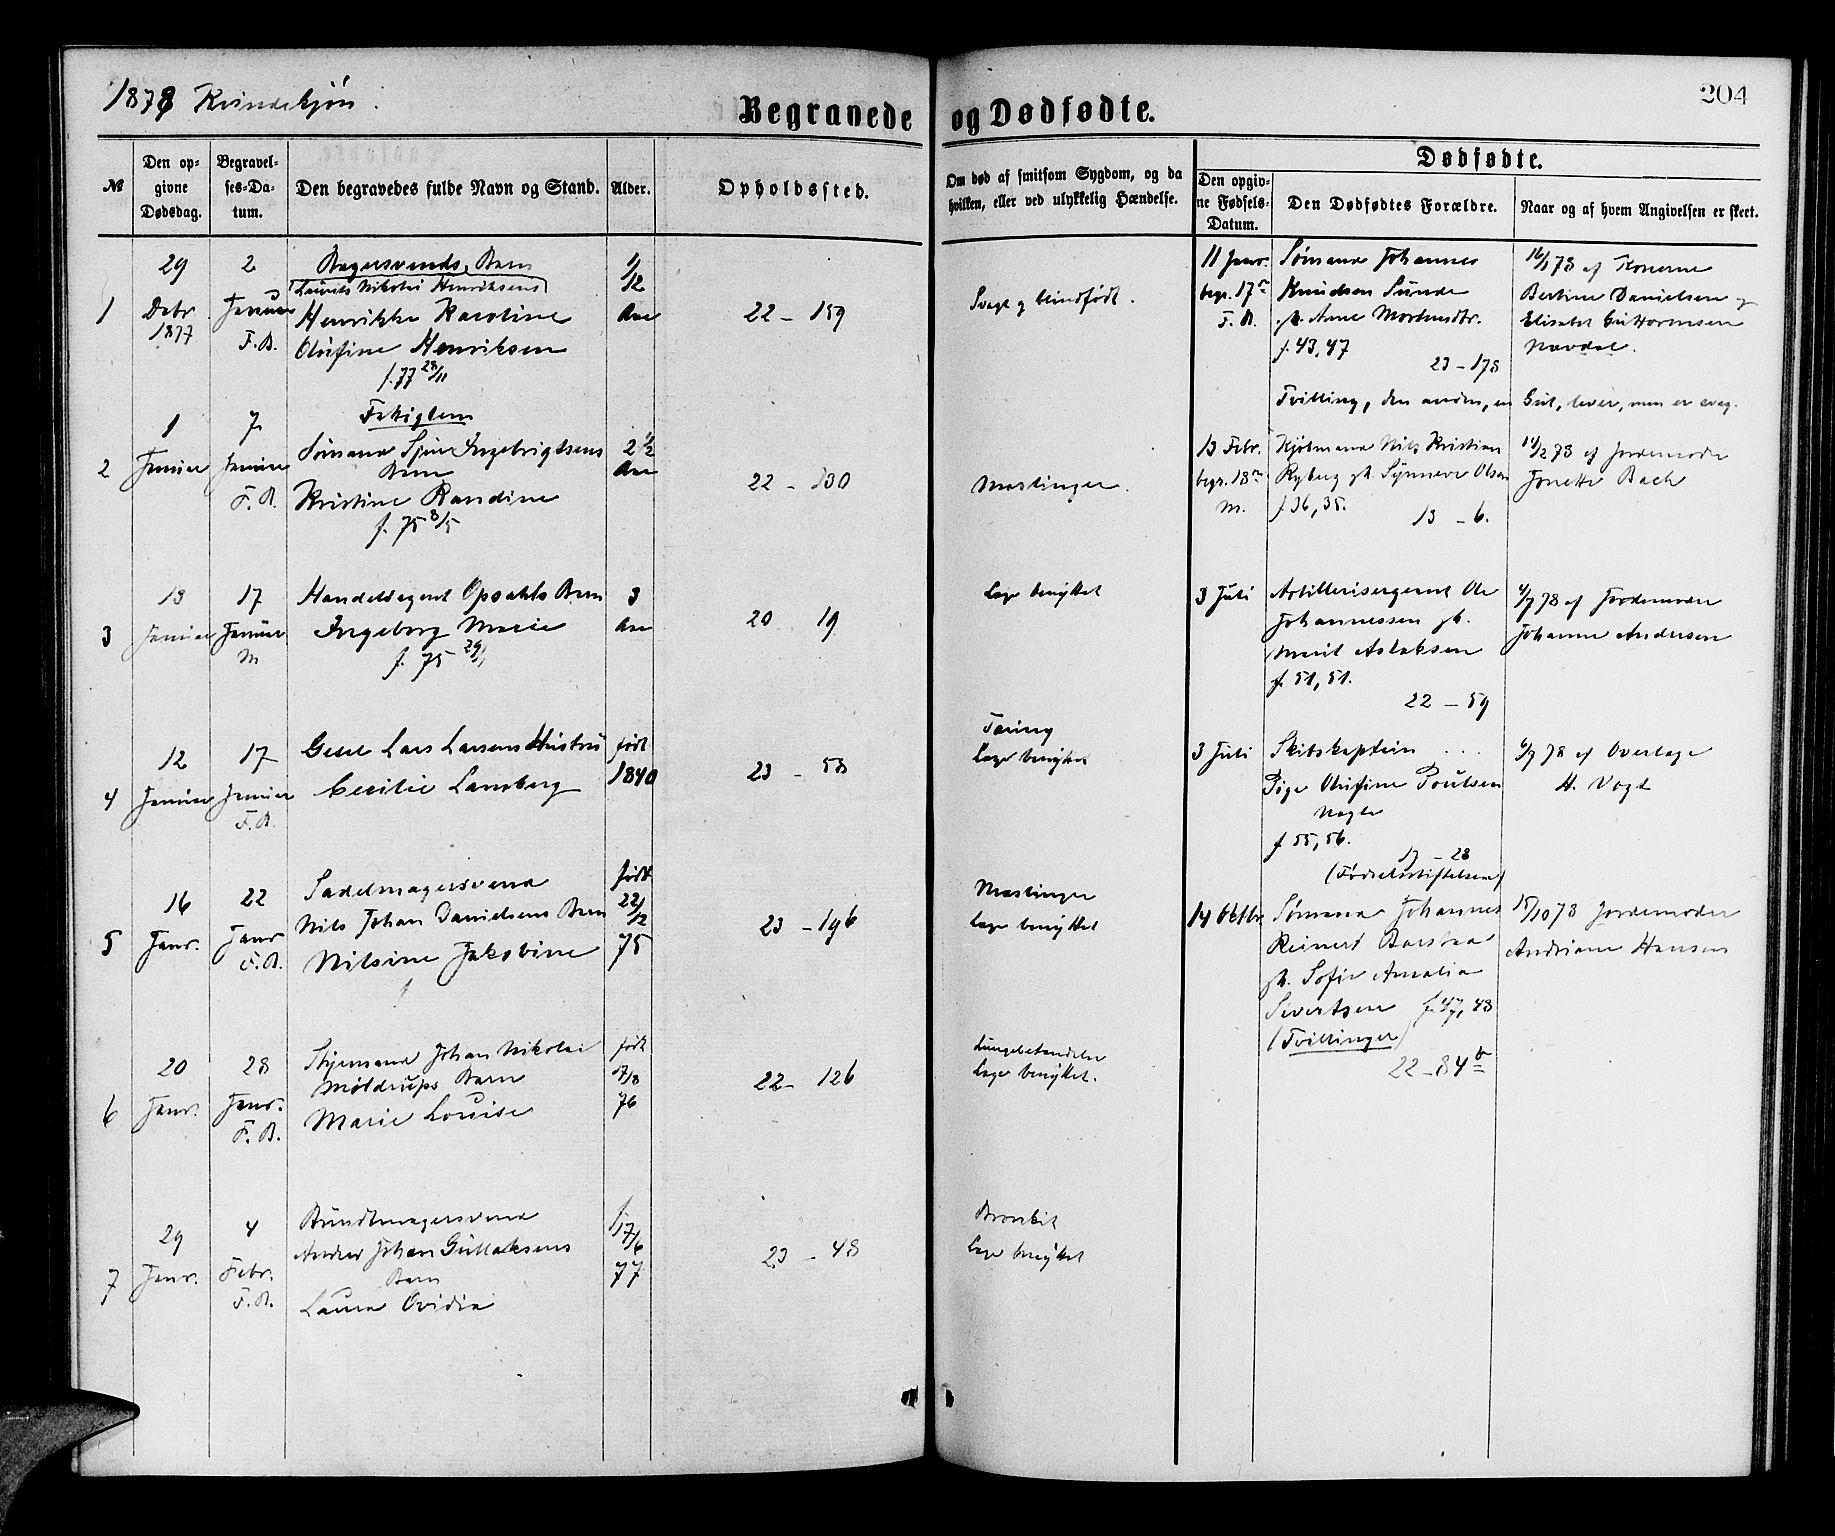 1878 Kvindekjön.
Begravede og Dødfødte.
204
№
Den op-
givne
Dødsdag.
Begravel-
ses-Da-
tum.
Den begravedes fulde Navn og Stand.
Alder.
Opholdssted.
Om død af smitsom Sygdom, og da
hvilken, eller ved ulykkelig Hændelse.
Dødfødte.
Den opgiv-
ne Fødsels-
Datum.
Den Dødfødtes Forældre.
Naar og af hvem Angivelsen er skeet.
1
29
Debr
1877
2
Januar
F. B.
Bagersvends Barn
Laurits Nikolai Henriksens
Henrikke Karoline
Olufine Henriksen
f. 77 28/11
1/12
Aar
22 - 159
Svagt g blindfödt.
2
1
Januar
7
Januar
F. B.
Fattiglem
Sömand Sjur Ingebrigtsens
Barn
Kristine Randine
f. 75 8/5
2 1/2
Aar
22 - 130
Mæslinger.
3
13
Januar
17
Januar
M
Handelsagent Opsahls Barn
Ingeborg Marie
f. 75 29/1
3
Aar
20 19
Læge benyttet
4
12
Januar
17
Januar
F. B.
Gesel Lars Larsens Hustru
Cecilie Lamberg
født
1840
23 - 58
Tæring
Læge benyttet
5
16
Janr.
22
Janr
F. B.
Sadelmagersvend
Nils Johan Danielsens Barn
Nilsine Jakobine
født
22/12
75
23 - 196
Mæslinger
Læge benyttet
6
20
Janr.
28
Janr.
F. B.
Styrmand Johan Nikolai
Møldrups Barn
Marie Louise
født
17/8
76
22 - 126
Lungebetændelse
Læge benyttet.
7
29
Janr.
4
Febr.
F. B.
Bundtmagersvend
Andreas Johan Gullaksens
Barn
Laura Ovidia
f
17/6
77
23 - 48
Bronkit
Læge benyttet
11 Janr.
begr. 17de
F. B.
Sømand Johannes
Knudsen Sunde
gt. Anne Mortensdtr.
f. 43, 47
23 - 178
Tvilling, den anden, en Gut, lever, men er svag.
16/1 78 af Konerne
Bertine Danielsen og
Elisabet Guttormsen
Navdal.
13 Febr.
begr. 18de
M.
Kjöbmand Nils Kristian
Ryberg gt. Synneve Olsen
f 36, 35.
13 - 6.
14/2 78 af Jordemoder
Jonette Bach
3 Juli
Artillerisergeant Ole
Johannessen gt.
Marit Aslaksen
f. 51, 51.
22 - 59
4/7 78 af Jordemoder
Johanne Andersen
3 Juli
Skibskaptein ...
Pige Olufine Poulsen
Nagle
f 55, 56.
17 - 28
(Fødselsstiftelsen)
6/7 78 af Overlæge
H. Vogt
14 Octbr
Sømand Johannes
Reinert Barstad
gt. Sofie Amalia
Sivertsen f. 47, 48
(Tvillinger)
22 - 84 b
15/10 78 Jordemoder
Andriane Hansen